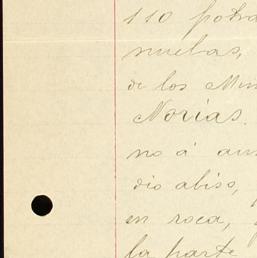 110 potra
muelas,
de los Min
Norias.
no á aus
dio abiso,
en roca,
la parte